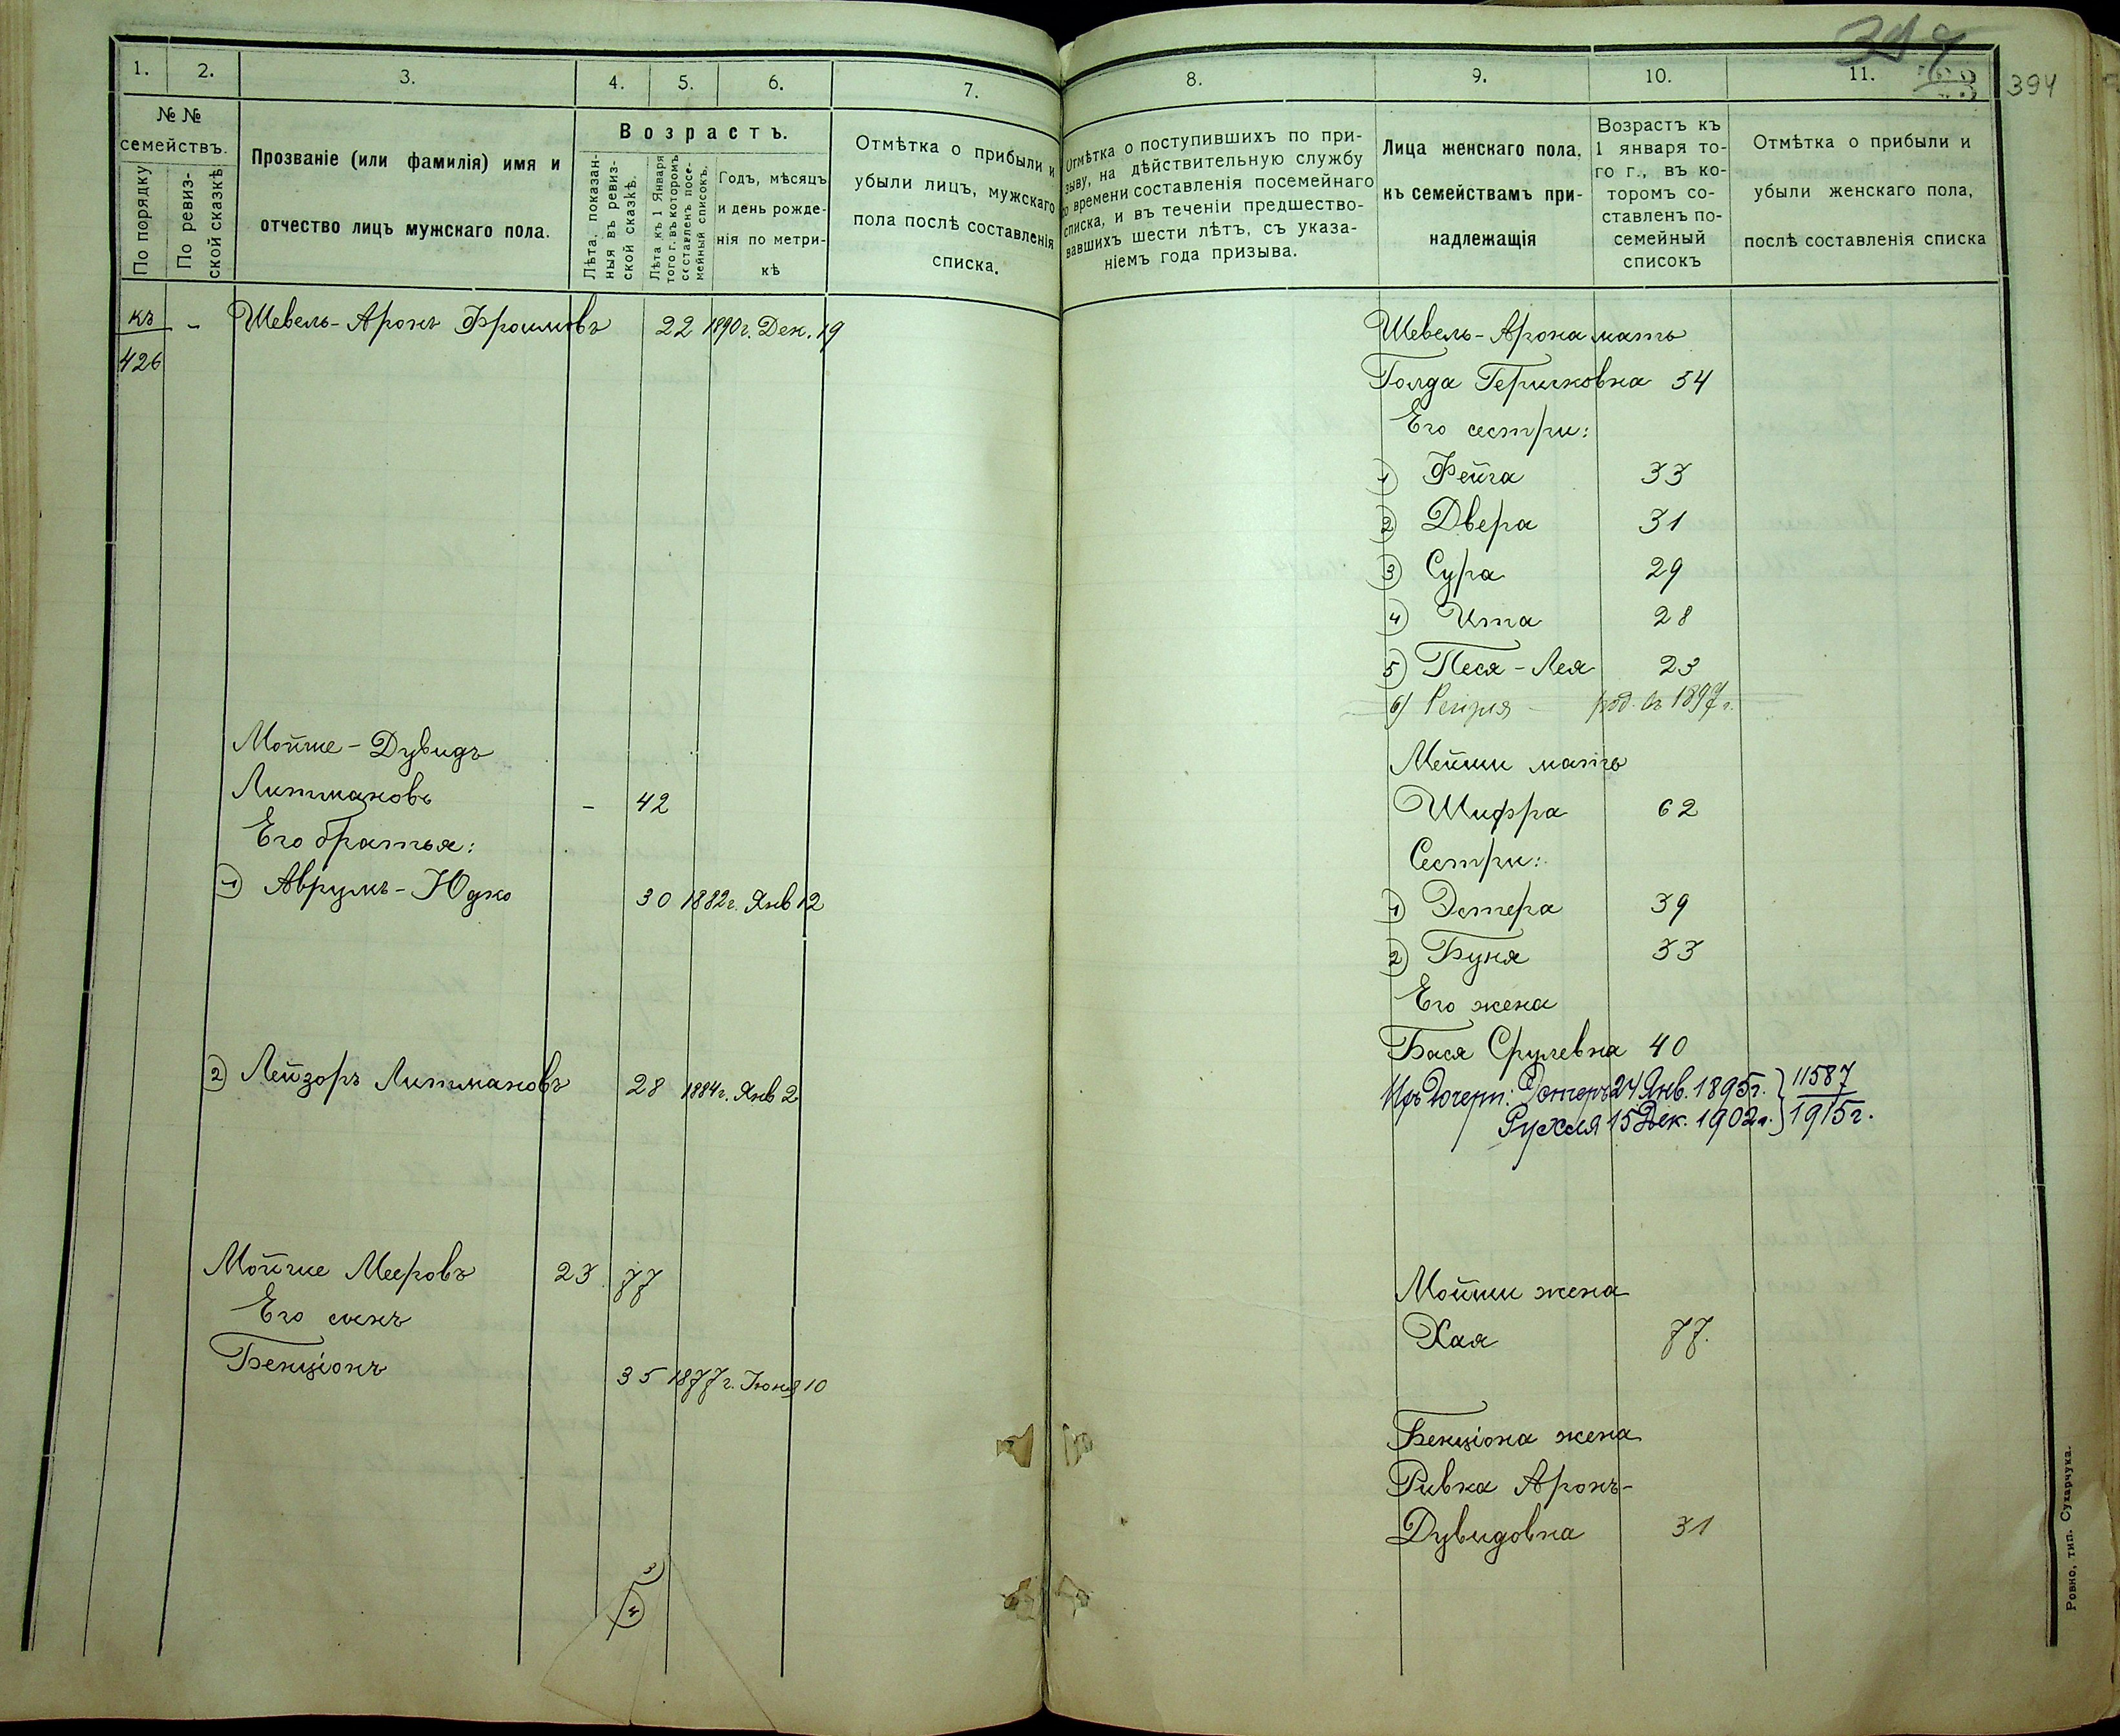 1.
2.
3.
4.
5.
6.
7.
№ №
семействъ.
По порядку
По ревиз-
ской сказкѣ
Прозваніе (или фамилія) имя и
отчество лицъ мужскаго пола.
Возрастъ.
Лѣта, показан-
ныя въ ревиз-
ской сказкѣ.
Лѣта къ 1 Января
того г. въ которомъ
составленъ посе-
мейный списокъ.
Годъ, мѣсяцъ
и день рожде-
нія по метри-
кѣ
Отмѣтка о прибыли и
убыли лицъ, мужскаго
пола послѣ составленія
списка.
къ
426
- Шевель-Аронъ Фроимовъ 22 1890г. Дек. 19
Мойше-Дувидъ
Литмановъ - 42
Его братья:
1) Аврумъ-Юдко 30 1882г. Янв 12
2) Лейзоръ Литмановъ 28 1884г. Янв 2
Мойше Мееровъ 23 77
Его сынъ
Бенціонъ 35 1877г. Іюня 10
8.
9.
10.
11.
394
Отмѣтка о поступившихъ по при-
зыву, на дѣйствительную службу
до времени составленія посемейнаго
списка, и въ теченіи предшество-
вавшихъ шести лѣтъ, съ указа-
ніемъ года призыва.
Лица женскаго пола,
къ семействамъ при-
надлежащія
Возрастъ къ
1 января то-
го г., въ ко-
торомъ со-
ставленъ по-
семейный
списокъ
Отмѣтка о прибыли и
убыли женскаго пола,
послѣ составленія списка
Шевель-Арона мать
Голда Гершковна 54
Его сестры:
1) Фейга 33
2) Двера 31
3) Сура 29
4) Ита 28
5) Песя-Лея 23
6) род. въ 1897г.
Мойши мать
Шифра 62
Сестры:
1) Эстера 39
2) Буня 33
Его жена
Бася Срулевна 40
Ихъ дочери: Эстеръ 24 Янв. 1895г. } 11587
Рухля 15 Дек. 1902г. } 1915г.
Мойши жена
Хая 77.
Бенціона жена
Ривка Аронъ-
Дувидовна 31
Ровно, тип. Сухарчука.